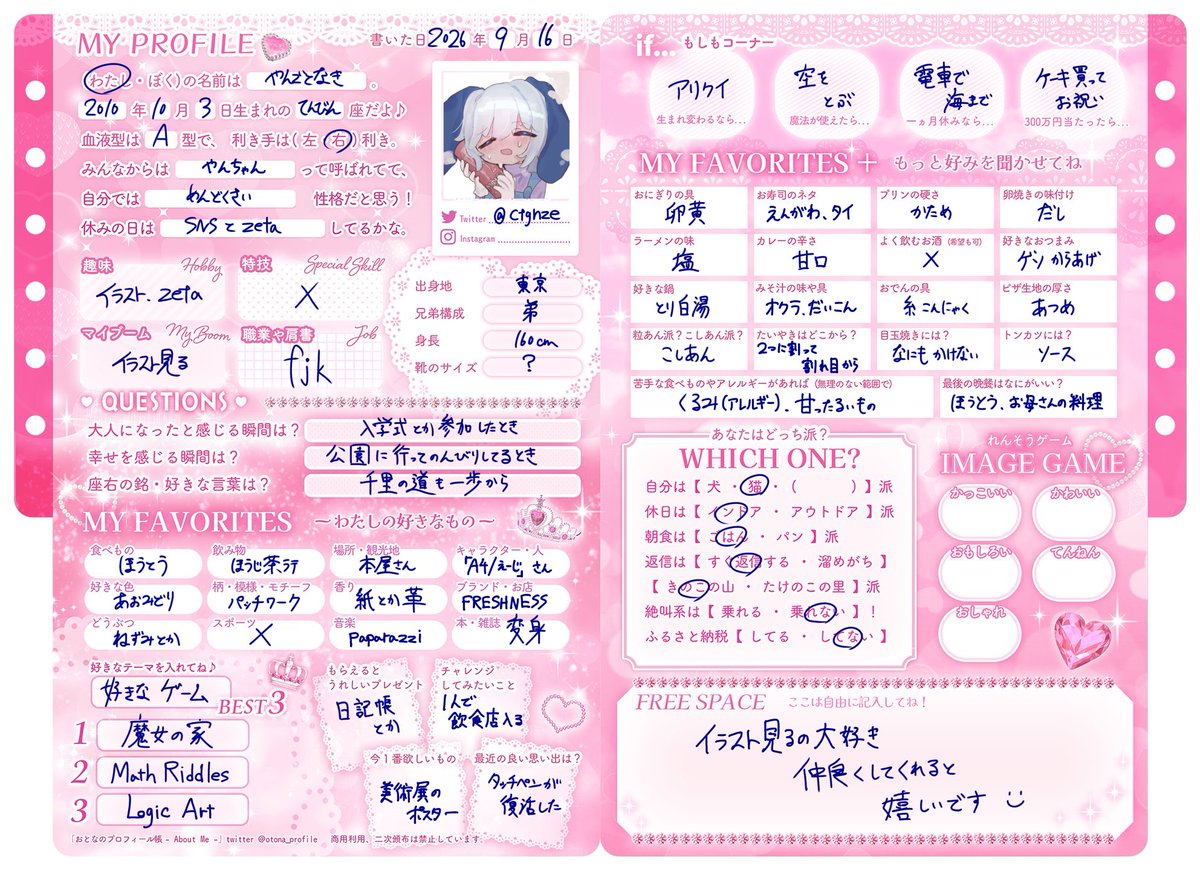 MY PROFILE
書いた日 2026 年 9 月 16 日
(わたし・ぼく)の名前は やんとなき 。
2010 年 10 月 3 日生まれの てんびん 座だよ♪
血液型は A 型で、利き手は(左・右)利き。
みんなからは やんちゃん って呼ばれてて、
自分では めんどくさい 性格だと思う!
休みの日は SNSとzeta してるかな。
Twitter @ctghze
Instagram
趣味 Hobby
イラスト、zeta
特技 Special Skill
×
マイブーム My Boom
イラスト見る
職業や肩書 Job
fjk
出身地 東京
兄弟構成 弟
身長 160cm
靴のサイズ ?
QUESTIONS
大人になったと感じる瞬間は? 入学式とか参加したとき
幸せを感じる瞬間は? 公園に行ってのんびりしてるとき
座右の銘・好きな言葉は? 千里の道も一歩から
MY FAVORITES 〜わたしの好きなもの〜
食べもの ほうとう
飲み物 ほうじ茶ラテ
場所・観光地 本屋さん
キャラクター・人 "A4/えーじ"さん
好きな色 あおみどり
柄・模様・モチーフ パッチワーク
香り 紙とか革
ブランド・お店 FRESHNESS
どうぶつ ねずみとか
スポーツ ×
音楽 paparazzi
本・雑誌 変身
好きなテーマを入れてね♪
好きな ゲーム
BEST3
1 魔女の家
2 Math Riddles
3 Logic Art
もらえると
うれしいプレゼント
日記帳
とか
チャレンジ
してみたいこと
1人で
飲食店入る
今1番欲しいもの
美術展の
ポスター
最近の良い思い出は?
タッチペンが
復活した
「おとなのプロフィール帳 - About Me -」twitter @otona_profile 商用利用、二次頒布は禁止しています。
if... もしもコーナー
アリクイ
生まれ変わるなら...
空を
とぶ
魔法が使えたら...
電車で
海まで
一ヵ月休みなら...
ケーキ買って
お祝い
300万円当たったら...
MY FAVORITES + もっと好みを聞かせてね
おにぎりの具 卵黄
お寿司のネタ えんがわ、タイ
プリンの硬さ かため
卵焼きの味付け だし
ラーメンの味 塩
カレーの辛さ 甘口
よく飲むお酒(希望も可) ×
好きなおつまみ ゲソからあげ
好きな鍋 とり白湯
みそ汁の味や具 オクラ、だいこん
おでんの具 糸こんにゃく
ピザ生地の厚さ あつめ
粒あん派?こしあん派? こしあん
たいやきはどこから? 2つに割って
割れ目から
目玉焼きには? なにもかけない
トンカツには? ソース
苦手な食べものやアレルギーがあれば(無理のない範囲で)
くるみ(アレルギー)、甘ったるいもの
最後の晩餐はなにがいい?
ほうとう、お母さんの料理
あなたはどっち派?
WHICH ONE?
自分は【 犬 ・ 猫 ・ ( ) 】派
休日は【 インドア ・ アウトドア 】派
朝食は【 ごはん ・ パン 】派
返信は【 すぐ返信する ・ 溜めがち 】
【 きのこの山 ・ たけのこの里 】派
絶叫系は【 乗れる ・ 乗れない 】!
ふるさと納税【 してる ・ してない 】
れんそうゲーム
IMAGE GAME
かっこいい
かわいい
おもしろい
てんねん
おしゃれ
FREE SPACE ここは自由に記入してね!
イラスト見るの大好き
仲良くしてくれると
嬉しいです